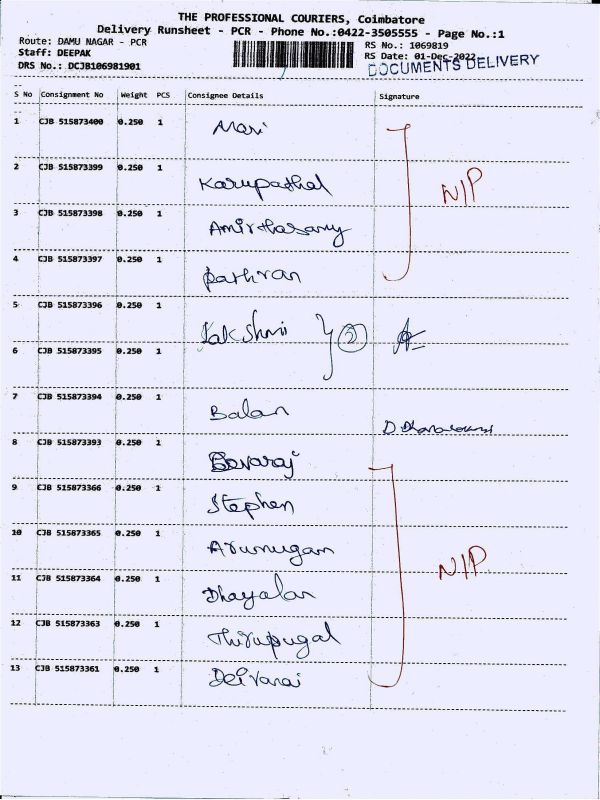 THE PROFESSIONAL COURIERS, Coimbatore
Delivery Runsheet - PCR - Phone No.:0422-3505555 - Page No.:1
Route: DAMU NAGAR - PCR
RS No.: 1069819
Staff: DEEPAK
RS Date: 01-Dec-2022
DRS No.: DCJB106981901
DOCUMENTS DELIVERY
S No Consignment No Weight PCS Consignee Details Signature
1 CJB 515873400 0.250 1 Mari
2 CJB 515873399 0.250 1 Karupathal N/P
3 CJB 515873398 0.250 1 Amirthasamy
4 CJB 515873397 0.250 1 Pathran
5 CJB 515873396 0.250 1 Lakshmi 2
6 CJB 515873395 0.250 1
7 CJB 515873394 0.250 1 Balan
8 CJB 515873393 0.250 1 Bevaraj
9 CJB 515873366 0.250 1 Stephen
10 CJB 515873365 0.250 1 Arumugam N/P
11 CJB 515873364 0.250 1 Dhayalan
12 CJB 515873363 0.250 1 Thirupugal
13 CJB 515873361 0.250 1 Deivanai